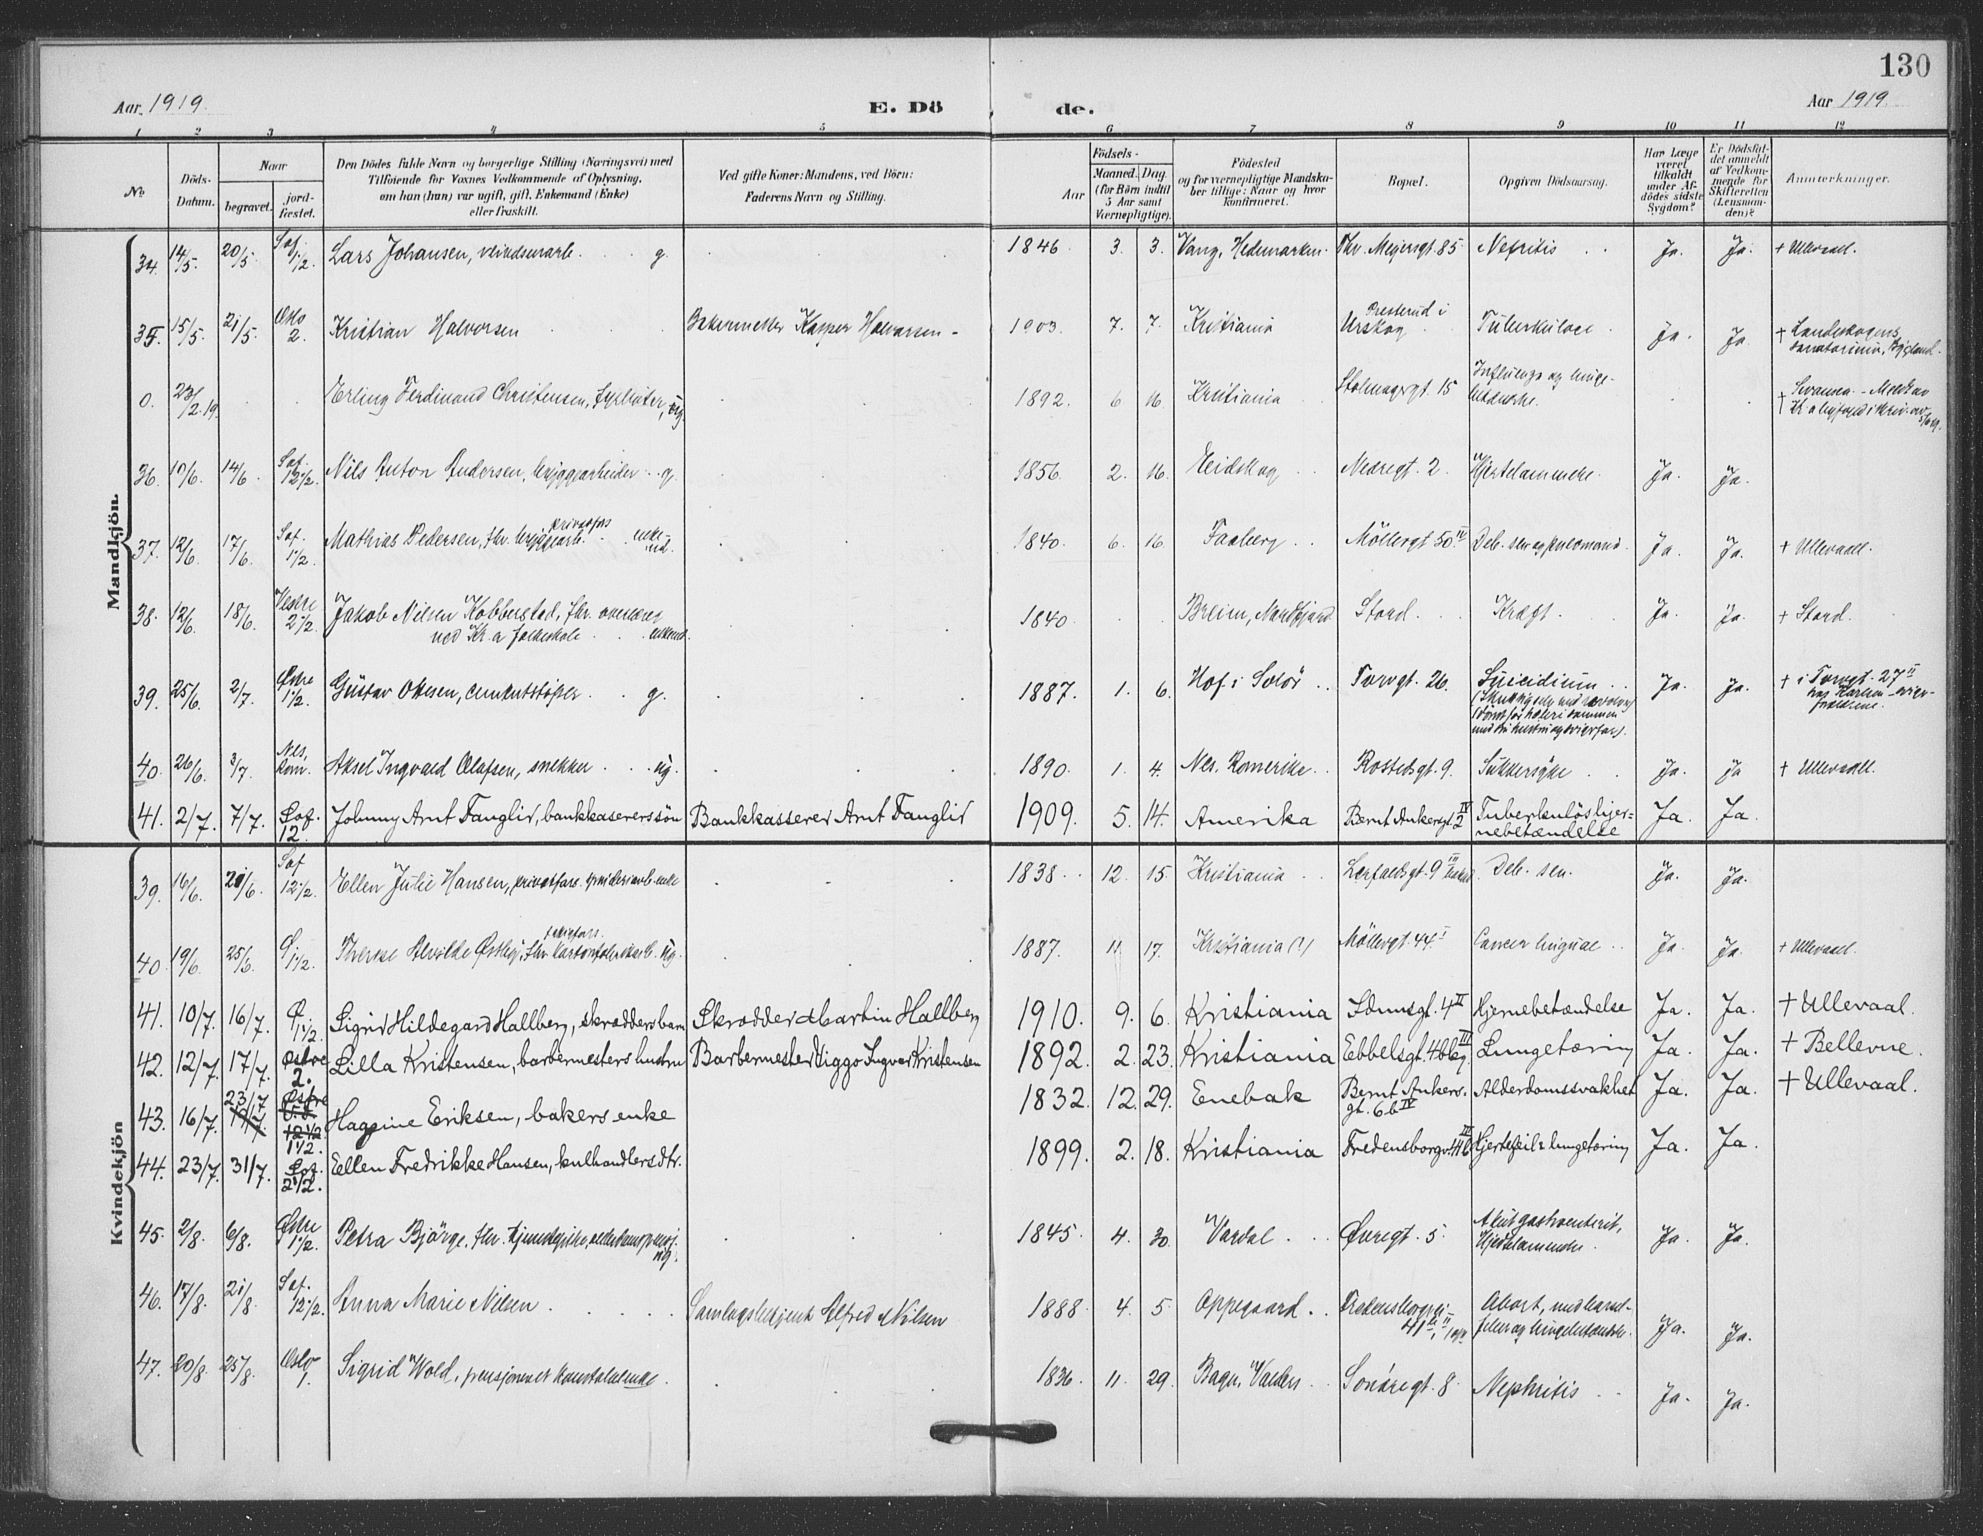 130
Aar 1919. E. Dö de. Aar 1919.
1 2 3 4 5 6 7 8 9 10 11 12
No
Döds-Datum.
Naar
begravet.
jord-fæstet.
Den Dödes fulde Navn og borgerlige Stilling (Næringsvei) med
Tilföiende for Voxnes Vedkommende af Oplysning,
om han (hun) var ugift, gift, Enkemand (Enke)
eller fraskilt.
Ved gifte Koner: Mandens, ved Börn:
Faderens Navn og Stilling.
Födsels-
Aar
Maaned. Dag.
(for Börn indtil
5 Aar samt
Værnepligtige).
Födested
og for værnepligtige Mandska-
ber tillige: Naar og hvor
konfirmeret.
Bopæl.
Opgiven Dödsaarsag.
Har Læge
været
tilkaldt
under Af-
dödes sidste
Sygdom?
Er Dödsfal-
det anmeldt
af Vedkom-
mende for
Skifteretten
(Lensman-
den)?
Anmerkninger.
Mandkjön.
34. 14/5. 20/5. Sof. 1 1/2. Lars Johansen, g. 1846 3. 3. Vang, Hedemarken. Thv. Meyersgt. 85 Nefritis Ja. Ja. + Ullevaal.
35. 15/5. 21/5. 2. Kristian Halvorsen Kasper Halvorsen 1903. 7. 7. Kristiania Urskog Tuberkulose Ja. Ja. + Landeskogens sanatorium, Bygland.
0. 23/2.19. Erling Ferdinand Christensen, ug. 1892. 6 16. Kristiania 15 Influenza og lunge-
36. 10/6. 14/6. Sof. 12 1/2. Nils Anton Andersen, bryggearbeider g. 1856. 2. 16. Eidskog Nedregt. 2. Hjertelammelse. Ja. Ja.
37. 12/6. 17/6. Sof. 1 1/2. Mathias Pedersen, fhv. bryggearb. enke-md. 1840. 6. 16. Faaberg Möllergt 50 IV Deb. sen. Ja. Ja. + Ullevaal.
38. 12/6. 18/6. Vestre 2 1/2. Jakob Nilsen Kobberstad, fhv. overlærer
ved Kr.a folkeskole enkemd. 1840. Breim, Nordfjord Stord. Kræft. Ja. Ja. + Stord.
39. 25/6. 2/7. Østre 1 1/2. Gustav Olsen, cementstöper g. 1887. 1. 6. Hof i Solör Torvgt. 26. Suicidium Ja. Ja. + i Torvgt. 27 II
40. 26/6. 3/7. Nes, Rom. Aksel Ingvald Olafsen, snekker ug. 1890. 1. 4. Nes. Romerike Rostedsgt. 9. Sukkersyke Ja. Ja + Ullevaal.
41. 2/7. 7/7. Sof. 12. Johnny Arnt Fanglid, bankkaserers sön Bankkasserer Arnt Fanglid 1909. 5. 14. Amerika Bernt Ankersgt. 2 IV Tuberkulös hjer-
nebetændelse Ja. Ja.
Kvindekjön
39. 16/6. 20/6. Sof 12 1/2. Ellen Julie Hansen, 1838. 12. 15. Kristiania 9 III Deb. sen. Ja. Ja.
40. 19/6. 25/6. Ø 1 1/2. Therese Alvilde Østby, fhv. ug. 1887. 11. 17. Kristiania (?) Möllergt. 44 I Cancer linguae Ja. Ja. + Ullevaal.
41. 10/7. 16/7. Ø 1 1/2. Sigrid Hildegard Hallberg, skrædders barn Skrædder Martin Hallberg 1910. 9. 6. Kristiania Idunsgt. 4 II Hjernebetændelse Ja. Ja. + Ullevaal.
42. 12/7. 17/7. Østre 2. Lilla Kristensen, barbermesters hustru Barbermester Viggo Ingvar Kristensen 1892. 2. 23. Kristiania Ebbelsgt. 4b III Lungetæring Ja. Ja. + Bellevue.
43. 16/7. 23/7 Østre 1 1/2. Hagine Eriksen, bakers enke 1832. 12. 29. Enebak Bernt Ankers-
gt. 6b IV Alderdomssvakhet Ja. Ja. + Ullevaal.
44. 23/7. 31/7. Sof. 2 1/2. Ellen Fredrikke Hansen, kulhandlers dtr. 1899. 2. 18. Kristiania Hjertefeil & lungetæring Ja. Ja.
45. 2/8. 6/8. Østre 1 1/2. Petra Björge, fhv. tjenestepike, ug. 1845. 4. 30. Vardal Øvregt. 5. Akut gastroenterit,
Hjertelammelse. Ja. Ja.
46. 17/8. 21/8. Sof. 12 1/2. Anna Marie Nilsen Alfred Nilsen 1888. 4. 5. Oppegaard Abort, Ja. Ja.
47. 20/8. 25/8. Oslo 1. Sigrid Wold, pensjoneret 1836. 11. 29. Bagn, Valders Söndregt. 8. Nephritis Ja. Ja.